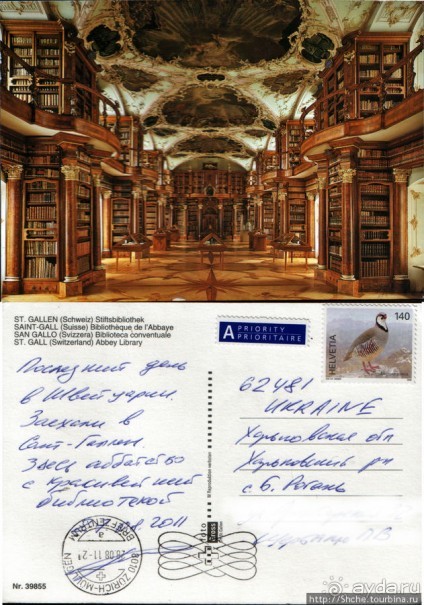 ST. GALLEN (Schweiz) Stiftsbibliothek
SAINT-GALL (Suisse) Bibliothèque de l'Abbaye
SAN GALLO (Svizzera) Biblioteca conventuale
ST. GALL (Switzerland) Abbey Library
A PRIORITY
PRIORITAIRE
HELVETIA
140
Последний день
в Швейцарии.
Заехали в
Санкт-Галлен.
Здесь аббатство
с красивейшей
библиотекой
2011
62481
UKRAINE
Харьковская обл
Харьковский рн
с Б. Рогань
8010 ZÜRICH-MÜLLIGEN
BRIEFZENTRUM
.08.11-2
Nr. 39855
ayda.ru
http://Shche.tourbina.ru